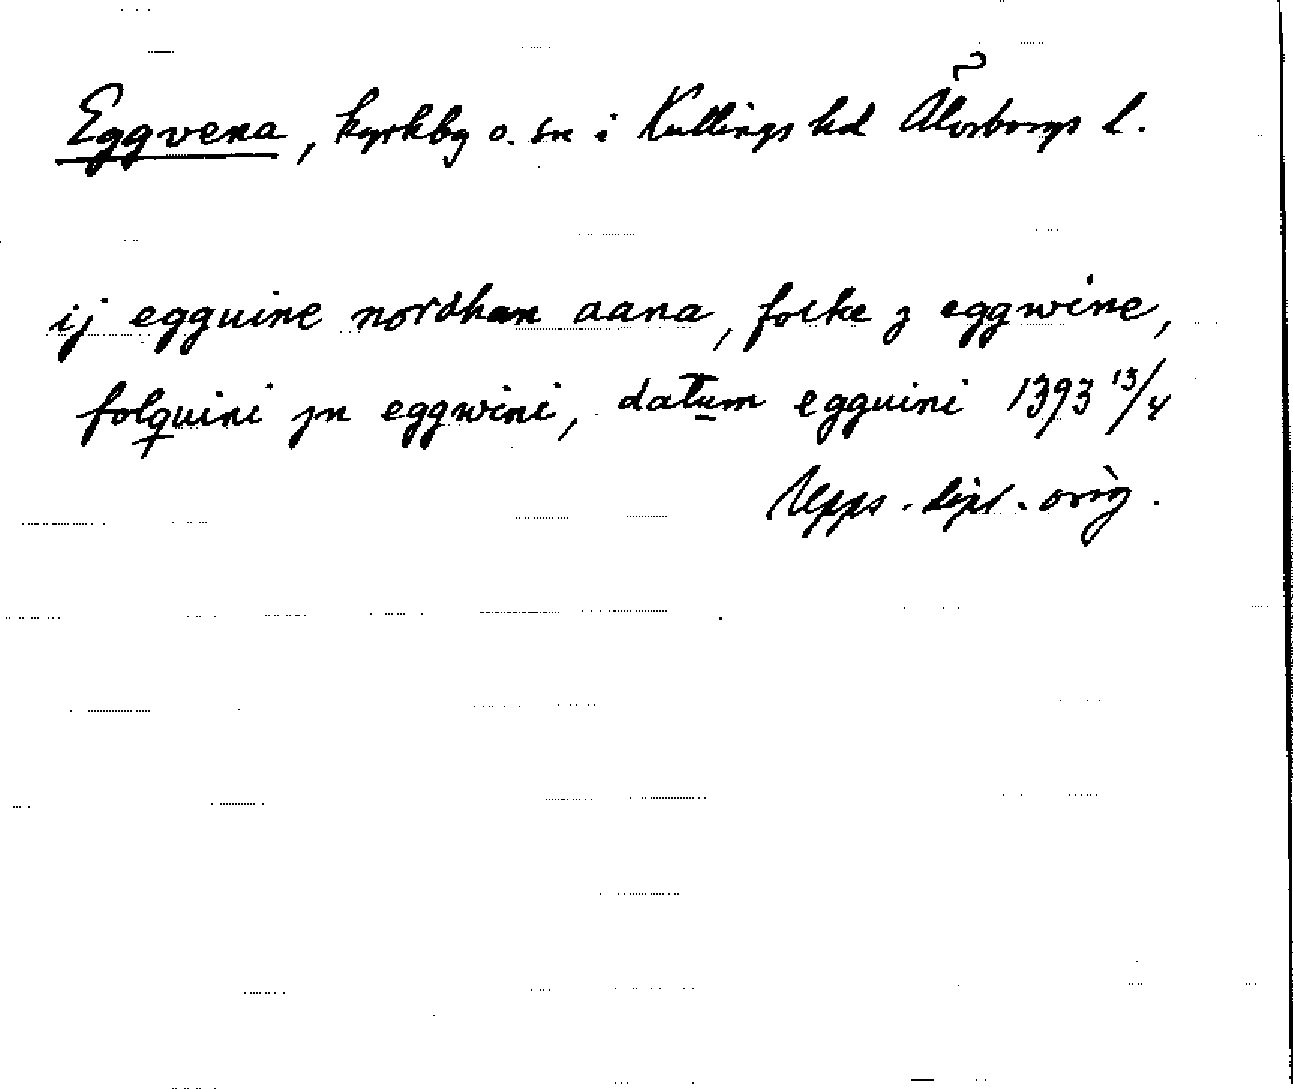 Eggvena, kyrkby o. sn i Kullings hd Älvsborgs l.
ij egguine nordhan aana, focke z eggwine,
folquini jn eggwini, datum egguini 1393 13/4
Upps. dipl. orig.